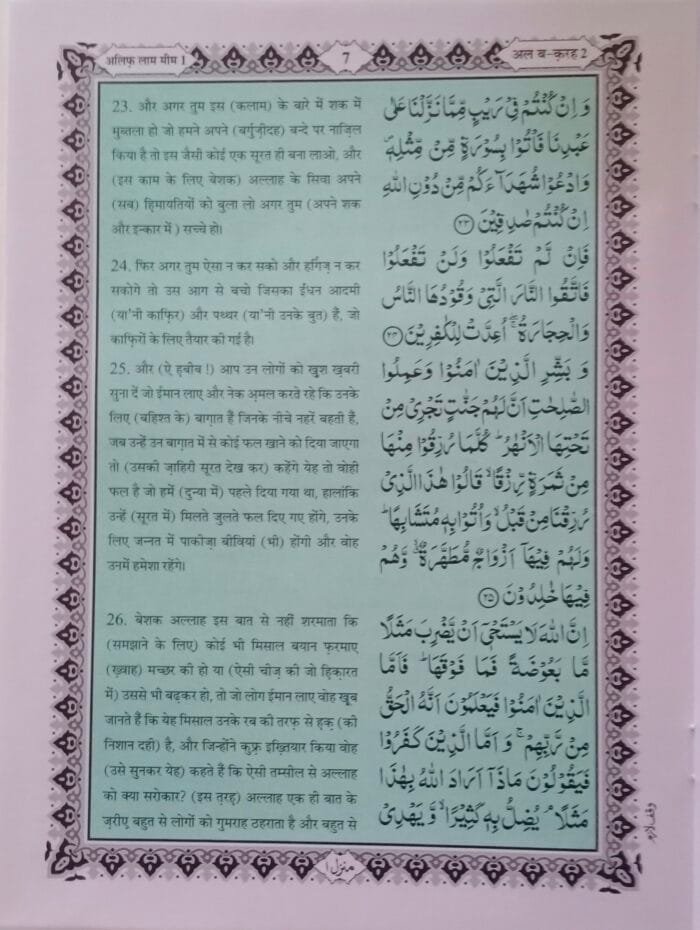 अलिफ़ लाम मीम 1
7
अल ब-क़रह 2
23. और अगर तुम इस (कलाम) के बारे में शक में
मुब्तला हो जो हमने अपने (बर्गुज़ीदह) बन्दे पर नाज़िल
किया है तो इस जैसी कोई एक सूरत ही बना लाओ, और
(इस काम के लिए बेशक) अल्लाह के सिवा अपने
(सब) हिमायतियों को बुला लो अगर तुम (अपने शक
और इन्कार में ) सच्चे हो।
24. फिर अगर तुम ऐसा न कर सको और हर्गिज़ न कर
सकोगे तो उस आग से बचो जिसका ईंधन आदमी
(या'नी काफ़िर) और पथ्थर (या'नी उनके बुत) हैं, जो
काफ़िरों के लिए तैयार की गई है।
25. और (ऐ हबीब !) आप उन लोगों को ख़ुश ख़बरी
सुना दें जो ईमान लाए और नेक अ़मल करते रहे कि उनके
लिए (बहिश्त के) बाग़ात हैं जिनके नीचे नहरें बहती हैं,
जब उन्हें उन बाग़ात में से कोई फल खाने को दिया जाएगा
तो (उसकी ज़ाहिरी सूरत देख कर) कहेंगे येह तो वोही
फल है जो हमें (दुन्या में) पहले दिया गया था, हालांकि
उन्हें (सूरत में) मिलते जुलते फल दिए गए होंगे, उनके
लिए जन्नत में पाकीज़ा बीवियां (भी) होंगी और वोह
उनमें हमेशा रहेंगे।
26. बेशक अल्लाह इस बात से नहीं शरमाता कि
(समझाने के लिए) कोई भी मिसाल बयान फ़रमाए
(ख़्वाह) मच्छर की हो या (ऐसी चीज़ की जो हि़क़ारत
में) उससे भी बढ़कर हो, तो जो लोग ईमान लाए वोह ख़ूब
जानते हैं कि येह मिसाल उनके रब की तरफ़ से हक़ (की
निशान दही) है, और जिन्होंने कुफ़्र इख़्तियार किया वोह
(उसे सुनकर येह) कहते हैं कि ऐसी तम्सील से अल्लाह
को क्या सरोकार? (इस तरह़) अल्लाह एक ही बात के
ज़रीए बहुत से लोगों को गुमराह ठहराता है और बहुत से
وَ اِنْ كُنْتُمْ فِیْ رَیْبٍ مِّمَّا نَزَّلْنَا عَلٰی
عَبْدِنَا فَاْتُوْا بِسُوْرَةٍ مِّنْ مِّثْلِهٖ ۪
وَ ادْعُوْا شُهَدَآءَكُمْ مِّنْ دُوْنِ اللّٰهِ
اِنْ كُنْتُمْ صٰدِقِیْنَ ﴿۲۳﴾
فَاِنْ لَّمْ تَفْعَلُوْا وَ لَنْ تَفْعَلُوْا
فَاتَّقُوا النَّارَ الَّتِیْ وَ قُوْدُهَا النَّاسُ
وَ الْحِجَارَةُ ۖۚ اُعِدَّتْ لِلْكٰفِرِیْنَ ﴿۲۴﴾
وَ بَشِّرِ الَّذِیْنَ اٰمَنُوْا وَ عَمِلُوا
الصّٰلِحٰتِ اَنَّ لَهُمْ جَنّٰتٍ تَجْرِیْ مِنْ
تَحْتِهَا الْاَنْهٰرُ ؕ كُلَّمَا رُزِقُوْا مِنْهَا
مِنْ ثَمَرَةٍ رِّزْقًا ۙ قَالُوْا هٰذَا الَّذِیْ
رُزِقْنَا مِنْ قَبْلُ ۙ وَ اُتُوْا بِهٖ مُتَشَابِهًا ؕ
وَ لَهُمْ فِیْهَاۤ اَزْوَاجٌ مُّطَهَّرَةٌ ۙۗ وَّ هُمْ
فِیْهَا خٰلِدُوْنَ ﴿۲۵﴾
اِنَّ اللّٰهَ لَا یَسْتَحْیٖۤ اَنْ یَّضْرِبَ مَثَلًا
مَّا بَعُوْضَةً فَمَا فَوْقَهَا ؕ فَاَمَّا
الَّذِیْنَ اٰمَنُوْا فَیَعْلَمُوْنَ اَنَّهُ الْحَقُّ
مِنْ رَّبِّهِمْ ۚ وَ اَمَّا الَّذِیْنَ كَفَرُوْا
فَیَقُوْلُوْنَ مَاذَاۤ اَرَادَ اللّٰهُ بِهٰذَا
مَثَلًا ۘ یُضِلُّ بِهٖ كَثِیْرًا ۙ وَّ یَهْدِیْ
وقف لازم
منزل ۱